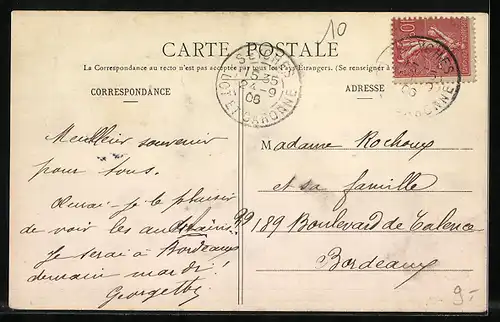 10
CARTE POSTALE
La Correspondance au recto n'est pas acceptée par tous les Pays Étrangers. (Se renseigner à
CORRESPONDANCE
ADRESSE
15 35
24 - 9
06
LOT ET GARONNE
Meilleur souvenir
pour tous.
Aurai-je le plaisir
de voir les
Je serai à Bordeaux
demain mardi!
Georgette
Madame Rochoux
et sa famille
189 Boulevard de Talence
Bordeaux
9-